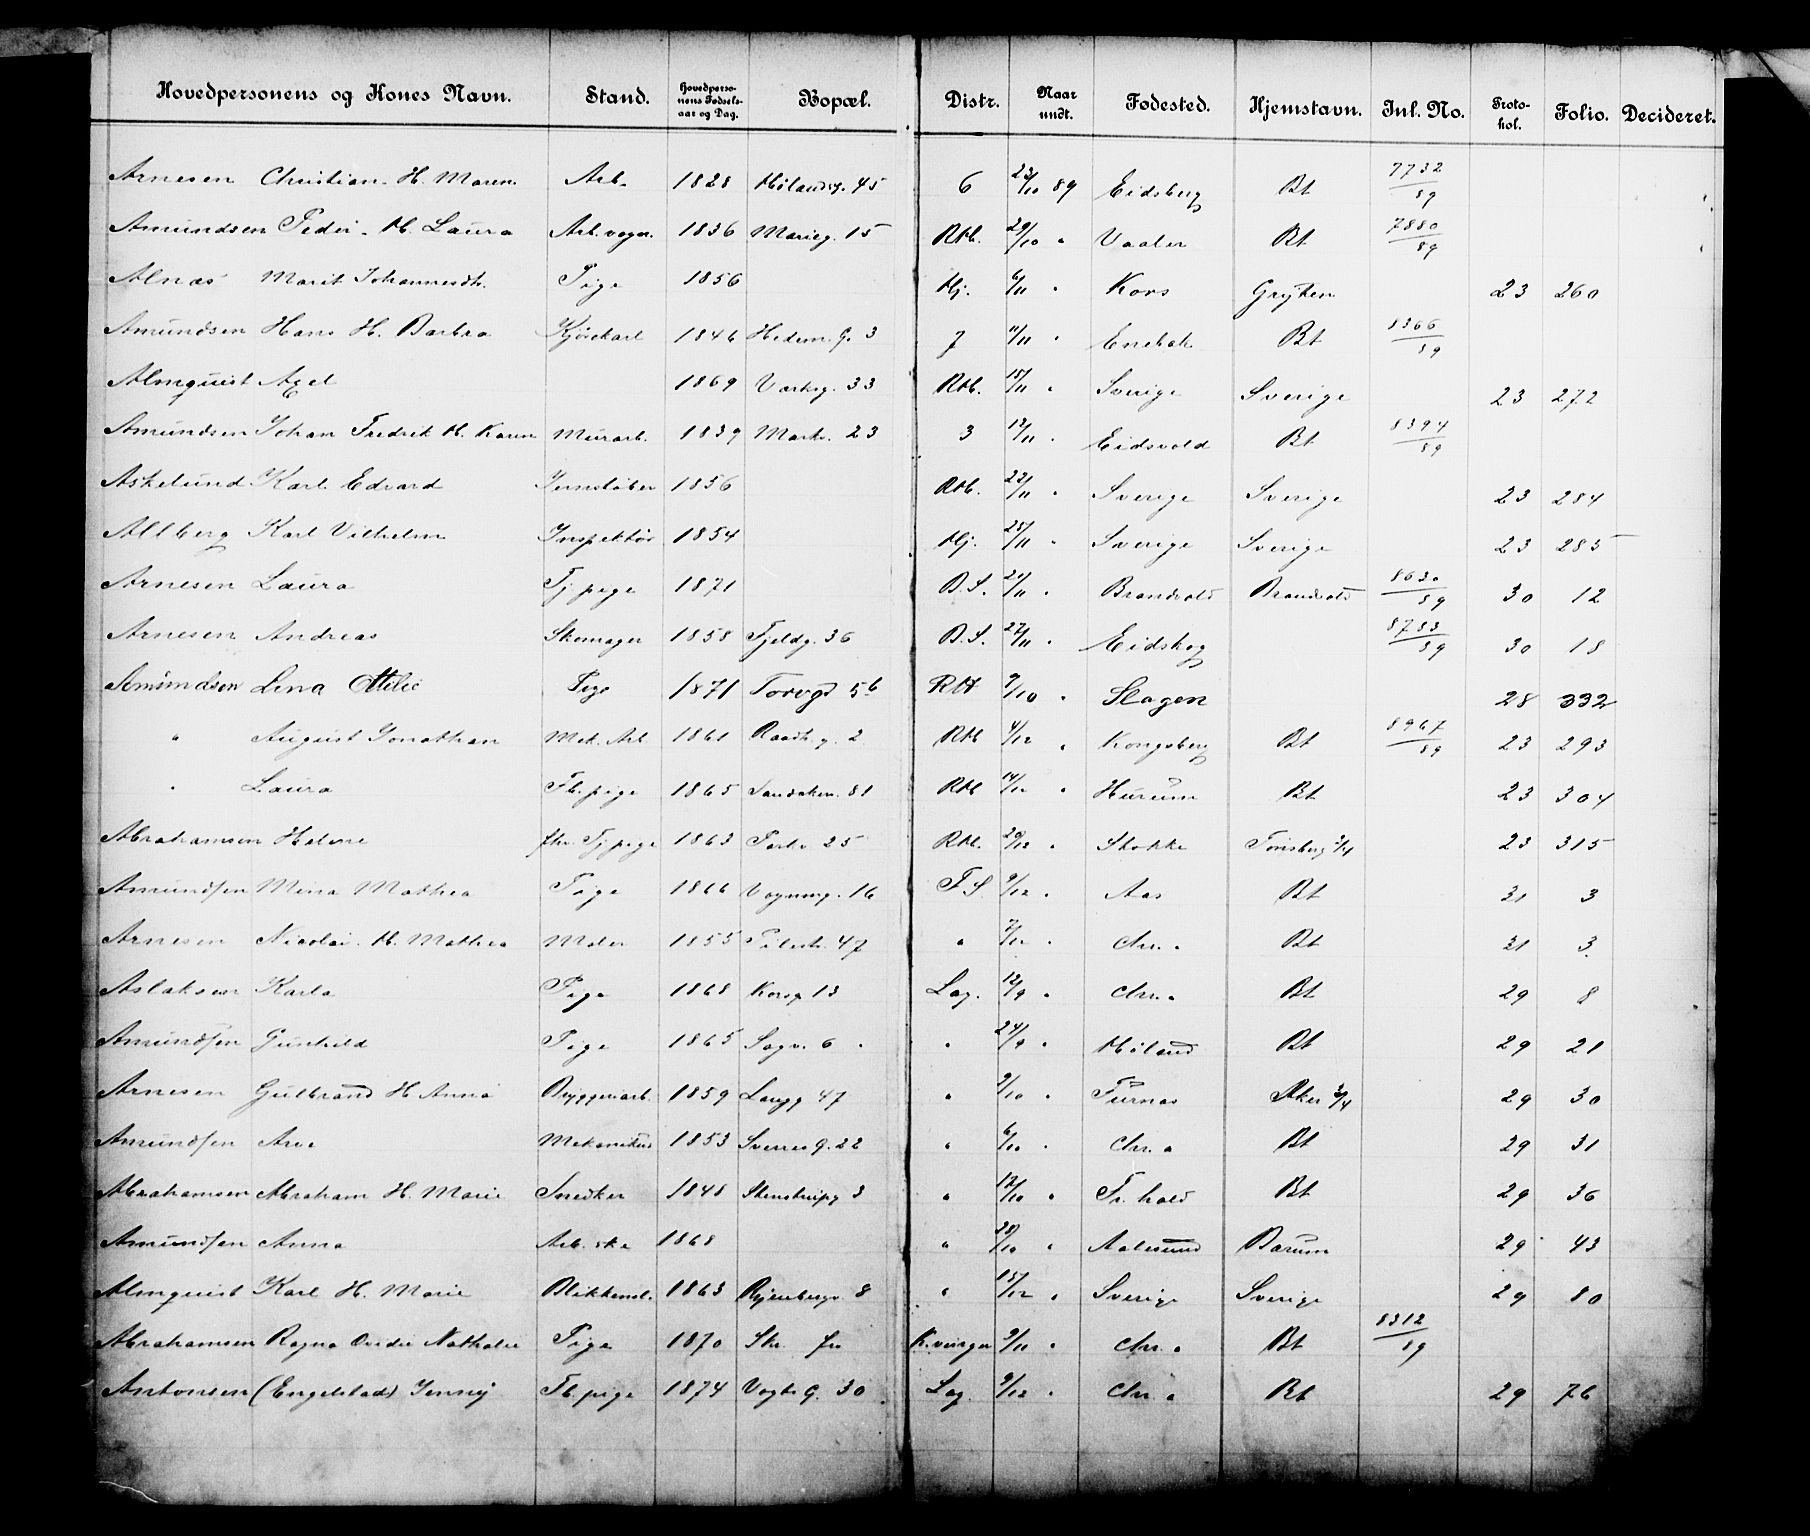 Hovedpersonens og Kones Navn. Stand. Hovedpersonens Fødselsaar og Dag. Bopæl. Distr. Naar undt. Fødested. Hjemstavn. Inl. No. Protokol. Folio. Decideret.
Arnesen Christian. H. Maren Arb. 1828 Hølandsg. 45 6 23/10 89 Eidsberg Bt 7732/89
Amundsen Peder. H. Laura Arb. vogn. 1836 Marieg. 15 RH. 29/10 " Vaaler Bt 7880/89
Alnæs Marit Johannesdt. Pige 1856 Hj. 6/11 " Kors Grytten 23 260
Amundsen Hans H. Barbra Kjørekarl 1846 Hedem. G. 3 7 11/11 " Enebak Bt 8366/89
Almquist Axel 1869 Værksg. 33 RH. 15/11 " Sverige Sverige 23 272
Amundsen Johan Fredrik H. Karen Murarb. 1839 Markv. 23 3 13/11 " Eidsvold Bt 8394/89
Askelund Karl Edvard Jernstøber 1856 RH. 22/11 " Sverige Sverige 23 284
Allberg Karl Vilhelm Inspektør 1854 Hj. 25/11 " Sverige Sverige 23 285
Arnesen Laura Tj. pige 1871 B.S. 21/11 " Brandvold Brandvold 8630/89 30 12
Arnesen Andreas Skomager 1858 Fjeldg. 36 B.S. 27/11 " Eidskog 8783/89 30 18
Amundsen Lina Otilie Pige 1871 Torvgd 56 RH 9/10 " Slagen 28 332
" August Jonathan Mek. Arb 1861 Raadh. g. 2 RH 4/12 " Kongsberg Bt 8967/89 23 293
" Laura Fb. pige 1865 Sandaken. 81 RH 14/12 " Hurum Bt 23 304
Abrahamsen Helene fhv. Tj. pige 1863 Parkv 25 RH. 20/12 " Stokke Tønsberg 3/4 23 315
Amundsen Mina Mathea Pige 1866 Vognmg. 16 F.S. 9/12 " Aas Bt 31 3
Arnesen Nicolai. H. Mathea Maler 1855 Pilestr. 47 " 7/12 " Chr.a Bt 31 3
Aslaksen Karla Pige 1868 Korsg 13 Lag. 12/9 " Chr.a Bt 29 8
Amundsen Gunhild Pige 1865 Sagv. 6 " 24/9 " Høland Bt 29 21
Arnesen Gulbrand H Anna Bryggeriarb. 1859 Langg 47 " 2/10 " Furnæs Aker 3/4 29 30
Amundsen Arve Mekanikus 1853 Sverres G. 22 " 6/10 " Chr.a Bt 29 31
Abrahamsen Abraham H. Marie Snedker 1848 Stenstrupg 3 " 12/10 " Fr. hald Bt 29 36
Amundsen Anna Arb. ske 1868 " 28/10 " Aalesund Bærum 29 43
Almquist Karl H. Marie Blikkensl. 1863 8 " 15/12 " Sverige Sverige 29 80
Abrahamsen Ragna Ovidie Nathalie Pige 1870 Str. K. vinger 9/11 " Chr.a Bt 8312/89
Antonsen (Engelstad) Jenny Fb. pige 1874 Vogts G. 30 Lag. 9/12 " Chr.a Bt 29 76